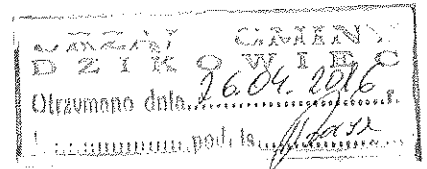 URZĄD GMINY
DZIKOWIEC
Otrzymano dnia 26.04.2016 r.
L. pod. is.